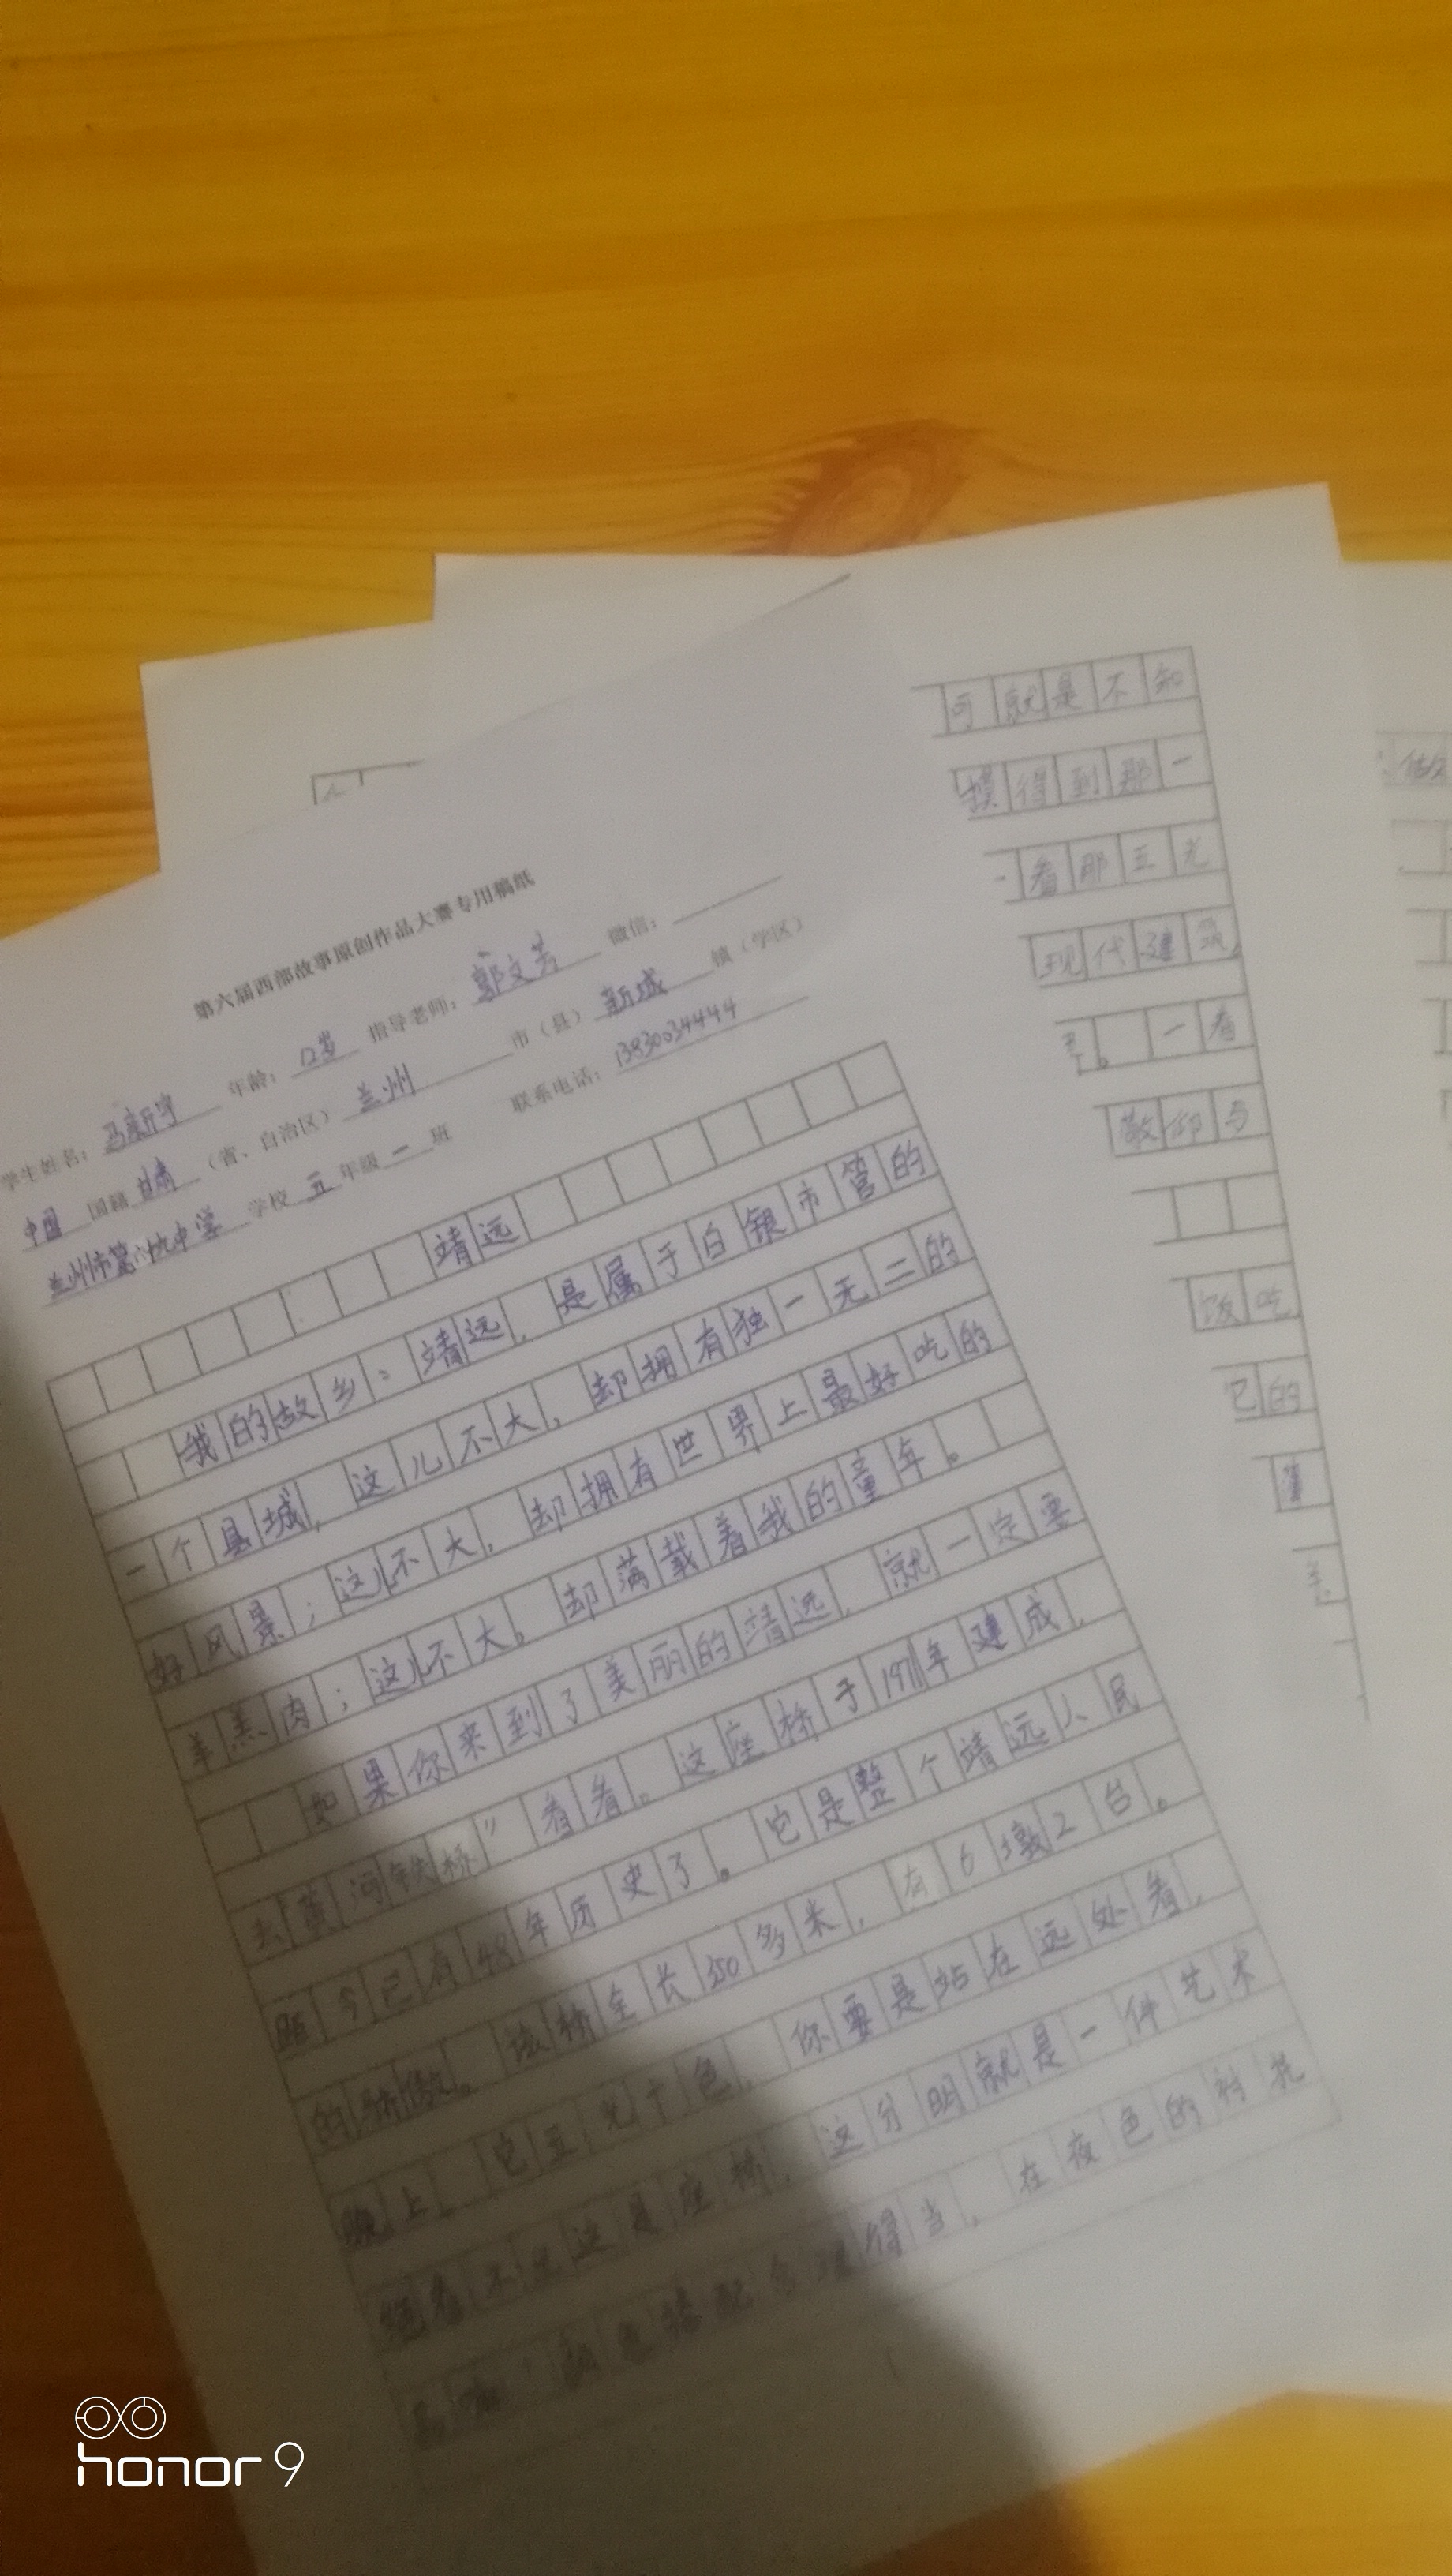 第六届西部故事原创作品大赛专用稿纸
学生姓名：马新宇 年龄：12岁 指导老师：郭文芳 微信：
中国 国籍 甘肃 （省、自治区） 兰州 市（县） 新城 镇（学区）
兰州市第六十九中学 学校 五 年级 一 班 联系电话：13830034444
靖远
我的故乡：靖远，是属于白银市管的
一个县城，这儿不大，却拥有独一无二的
好风景；这儿不大，却拥有世界上最好吃的
羊羔肉；这儿不大，却满载着我的童年。
如果你来到了美丽的靖远，就一定要
去黄河铁桥”看看。这座桥于1971年建成，
距今已有48年历史了。它是整个靖远人民
的骄傲。该桥全长350多米，有6墩2台。
晚上，它五光十色，你要是站在远处看，
绝看不出这是座桥，这分明就是一件艺术
品嘛！颜色搭配得当，在夜色的衬托
可就是不知
摸得到那一
看那五光
现代建筑，
。一看
敬仰与
饭吃
它的
做
honor 9